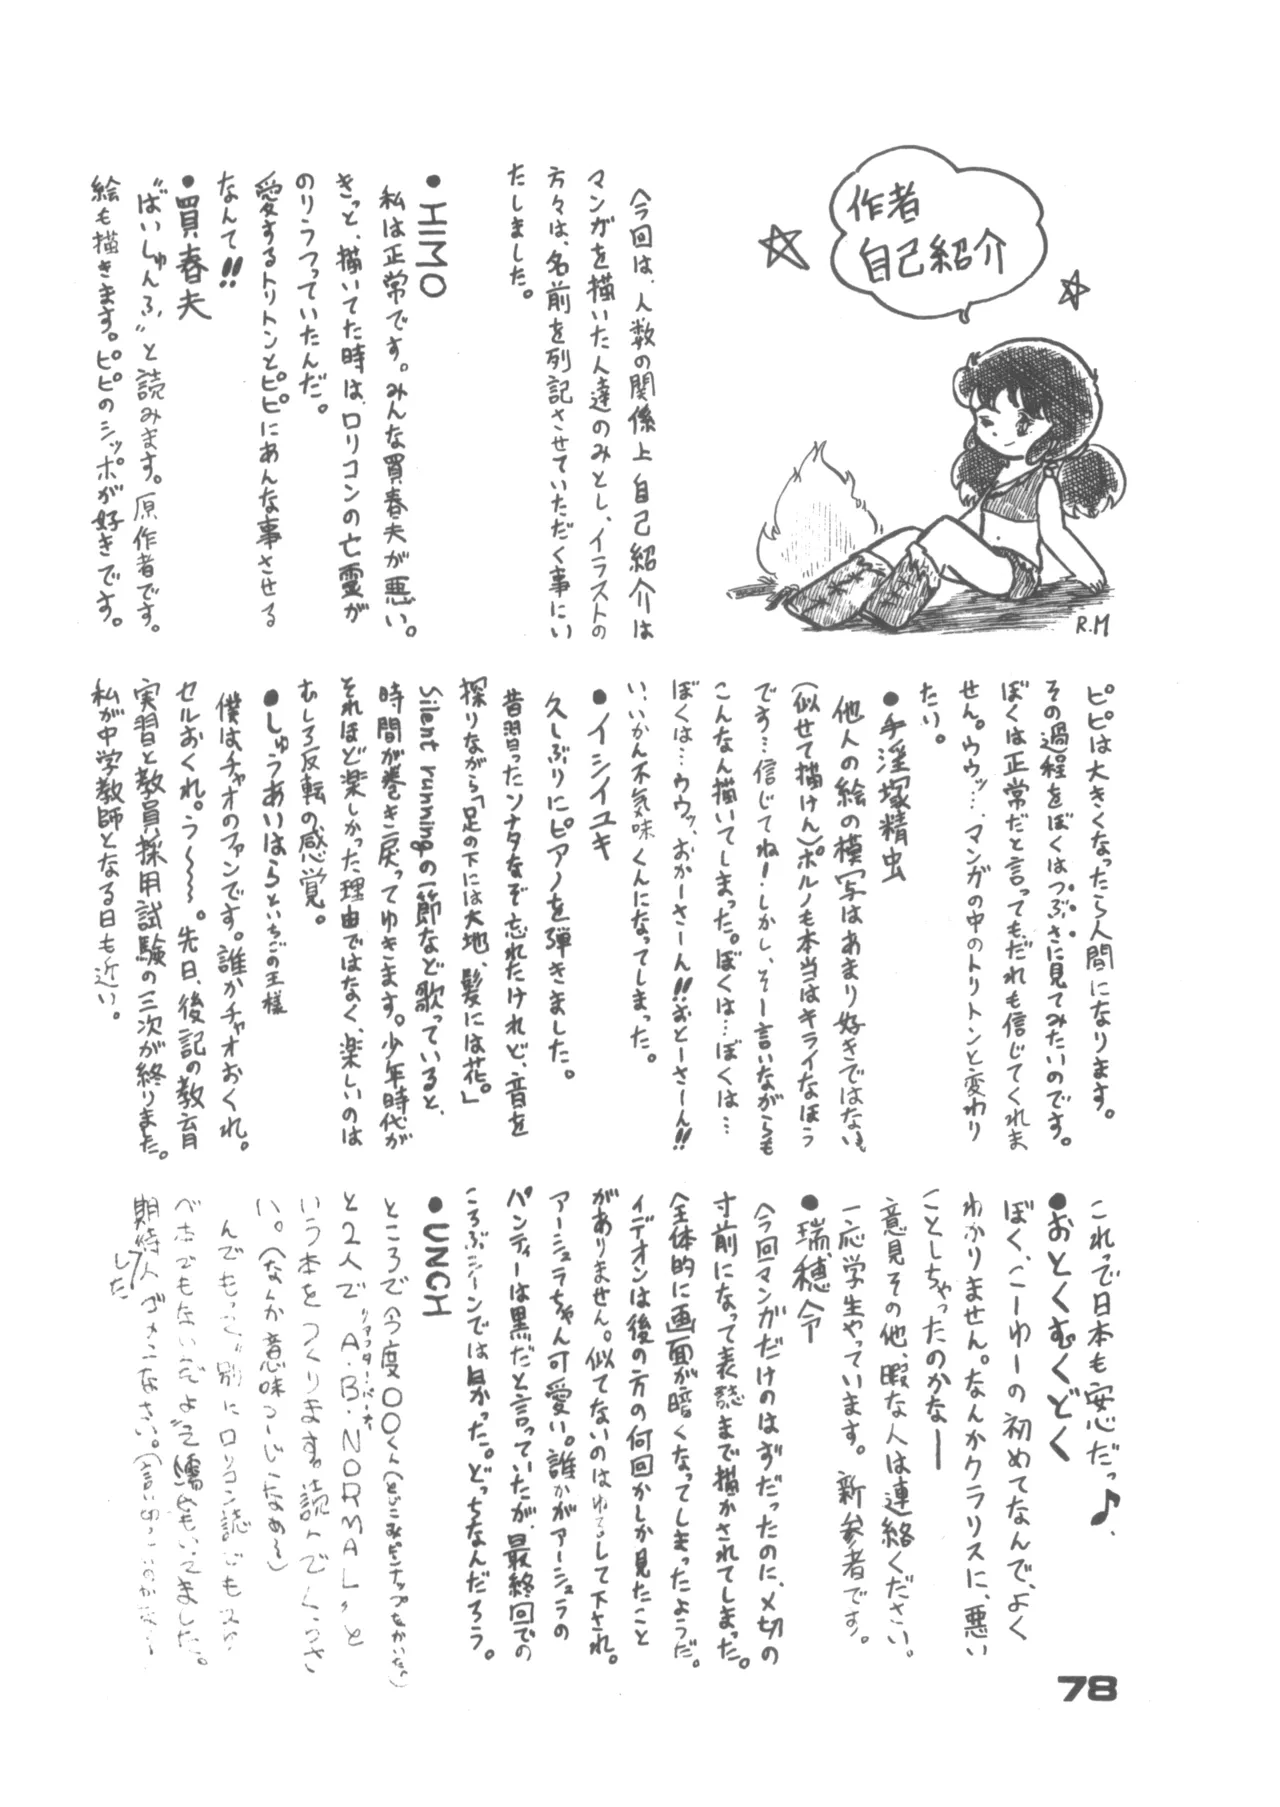 作者
自己紹介
R.M
今回は、人数の関係上 自己紹介は
マンガを描いた人達のみとし、イラストの
方々は、名前を列記させていただく事にい
たしました。
●HIMO
私は正常です。みんな買春夫が悪い。
きっと、描いてた時は、ロリコンの亡霊が
のりうつっていたんだ。
愛するトリトンとピピにあんな事させる
なんて!!
●買春夫
“ばいしゅんふ”と読みます。原作者です。
絵も描きます。ピピのシッポが好きです。
ピピは大きくなったら人間になります。
その過程をぼくはつぶさに見てみたいのです。
ぼくは正常だと言ってもだれも信じてくれま
せん。ウウッ…、マンガの中のトリトンと変わり
たい。
●手淫塚精虫
他人の絵の模写はあまり好きではない。
(似せて描けん)ポルノも本当はキライなほう
です…信じてね!しかし、そー言いながらも
こんなん描いてしまった。ぼくは…ぼくは…
ぼくは…ウウッ、おかーさーん!!おとーさーん!!
い、いかん不気味くんになってしまった。
●イシイユキ
久しぶりにピアノを弾きました。
昔習ったソナタなぞ忘れたけれど、音を
探りながら「足の下には大地、髪には花。」
Silent runningの一節など歌っていると、
時間が巻き戻ってゆきます。少年時代が
それほど楽しかった理由ではなく、楽しいのは
むしろ反転の感覚。
●しゅうあいはらといちごの王様
僕はチャオのファンです。誰かチャオおくれ。
セルおくれ。う〜〜〜。先日、後記の教育
実習と教員採用試験の三次が終りました。
私が中学教師となる日も近い。
これで日本も安心だっ♪、
●おとくむくどく
ぼく、こーゆーの初めてなんで、よく
わかりません。なんかクラリスに、悪い
ことしちゃったのかなー
意見その他、暇な人は連絡ください。
一応学生やっています。新参者です。
●瑞穂令
今回マンガだけのはずだったのに、〆切の
寸前になって表誌まで描かされてしまった。
全体的に画面が暗くなってしまったようだ。
イデオンは後の方の何回かしか見たこと
がありません。似てないのはゆるして下され。
アーシュラちゃん可愛い。誰かがアーシュラの
パンティーは黒だと言っていたが、最終回での
ころぶシーンでは白かった。どっちなんだろう。
●UNCH
ところで今度○○くん(とじこみピンナップをかいた)
と2人で“A・B・NORMAL”と
いう本をつくります。読んでくださ
い。(なんか意味つーじなぁ〜)
んでもって“別にロリコン誌でも
べ本でもないんだよ”
期待した人ゴメンなさい。
78